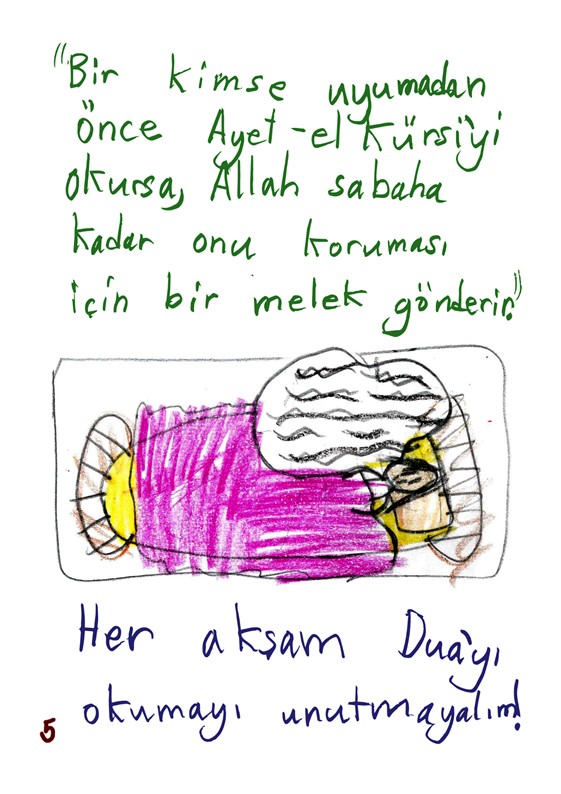 "Bir kimse uyumadan
önce Ayet-el Kürsi'yi
okursa, Allah sabaha
kadar onu koruması
için bir melek gönderir."
Her akşam Dua'yı
okumayı unutmayalım!
5